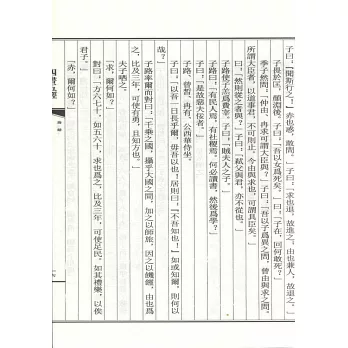 子曰：「聞斯行之！」赤也惑，敢問。」子曰：「求也退，故進之。由也兼人，故退之。」
子畏於匡，顏淵後。子曰：「吾以女爲死矣。」曰：「子在，回何敢死？」
季子然問：「仲由、冉求可謂大臣與？」子曰：「吾以子爲異之問，曾由與求之問。
所謂大臣者，以道事君，不可則止。今由與求也，可謂具臣矣。」
曰：「然則從之者與？」子曰：「弒父與君，亦不從也。」
子路使子羔爲費宰。子曰：「賊夫人之子。」
子路曰：「有民人焉，有社稷焉，何必讀書，然後爲學？」
子曰：「是故惡夫佞者。」
子路、曾皙、冉有、公西華侍坐。
子曰：「以吾一日長乎爾，毋吾以也！居則曰：『不吾知也！』如或知爾，則何以
哉？」
子路率爾而對曰：「千乘之國，攝乎大國之間，加之以師旅，因之以饑饉，由也爲
之，比及三年，可使有勇，且知方也。」
夫子哂之。
「求，爾何如？」
對曰：「方六七十，如五六十，求也爲之，比及三年，可使足民。如其禮樂，以俟
君子。」
「赤，爾何如？」